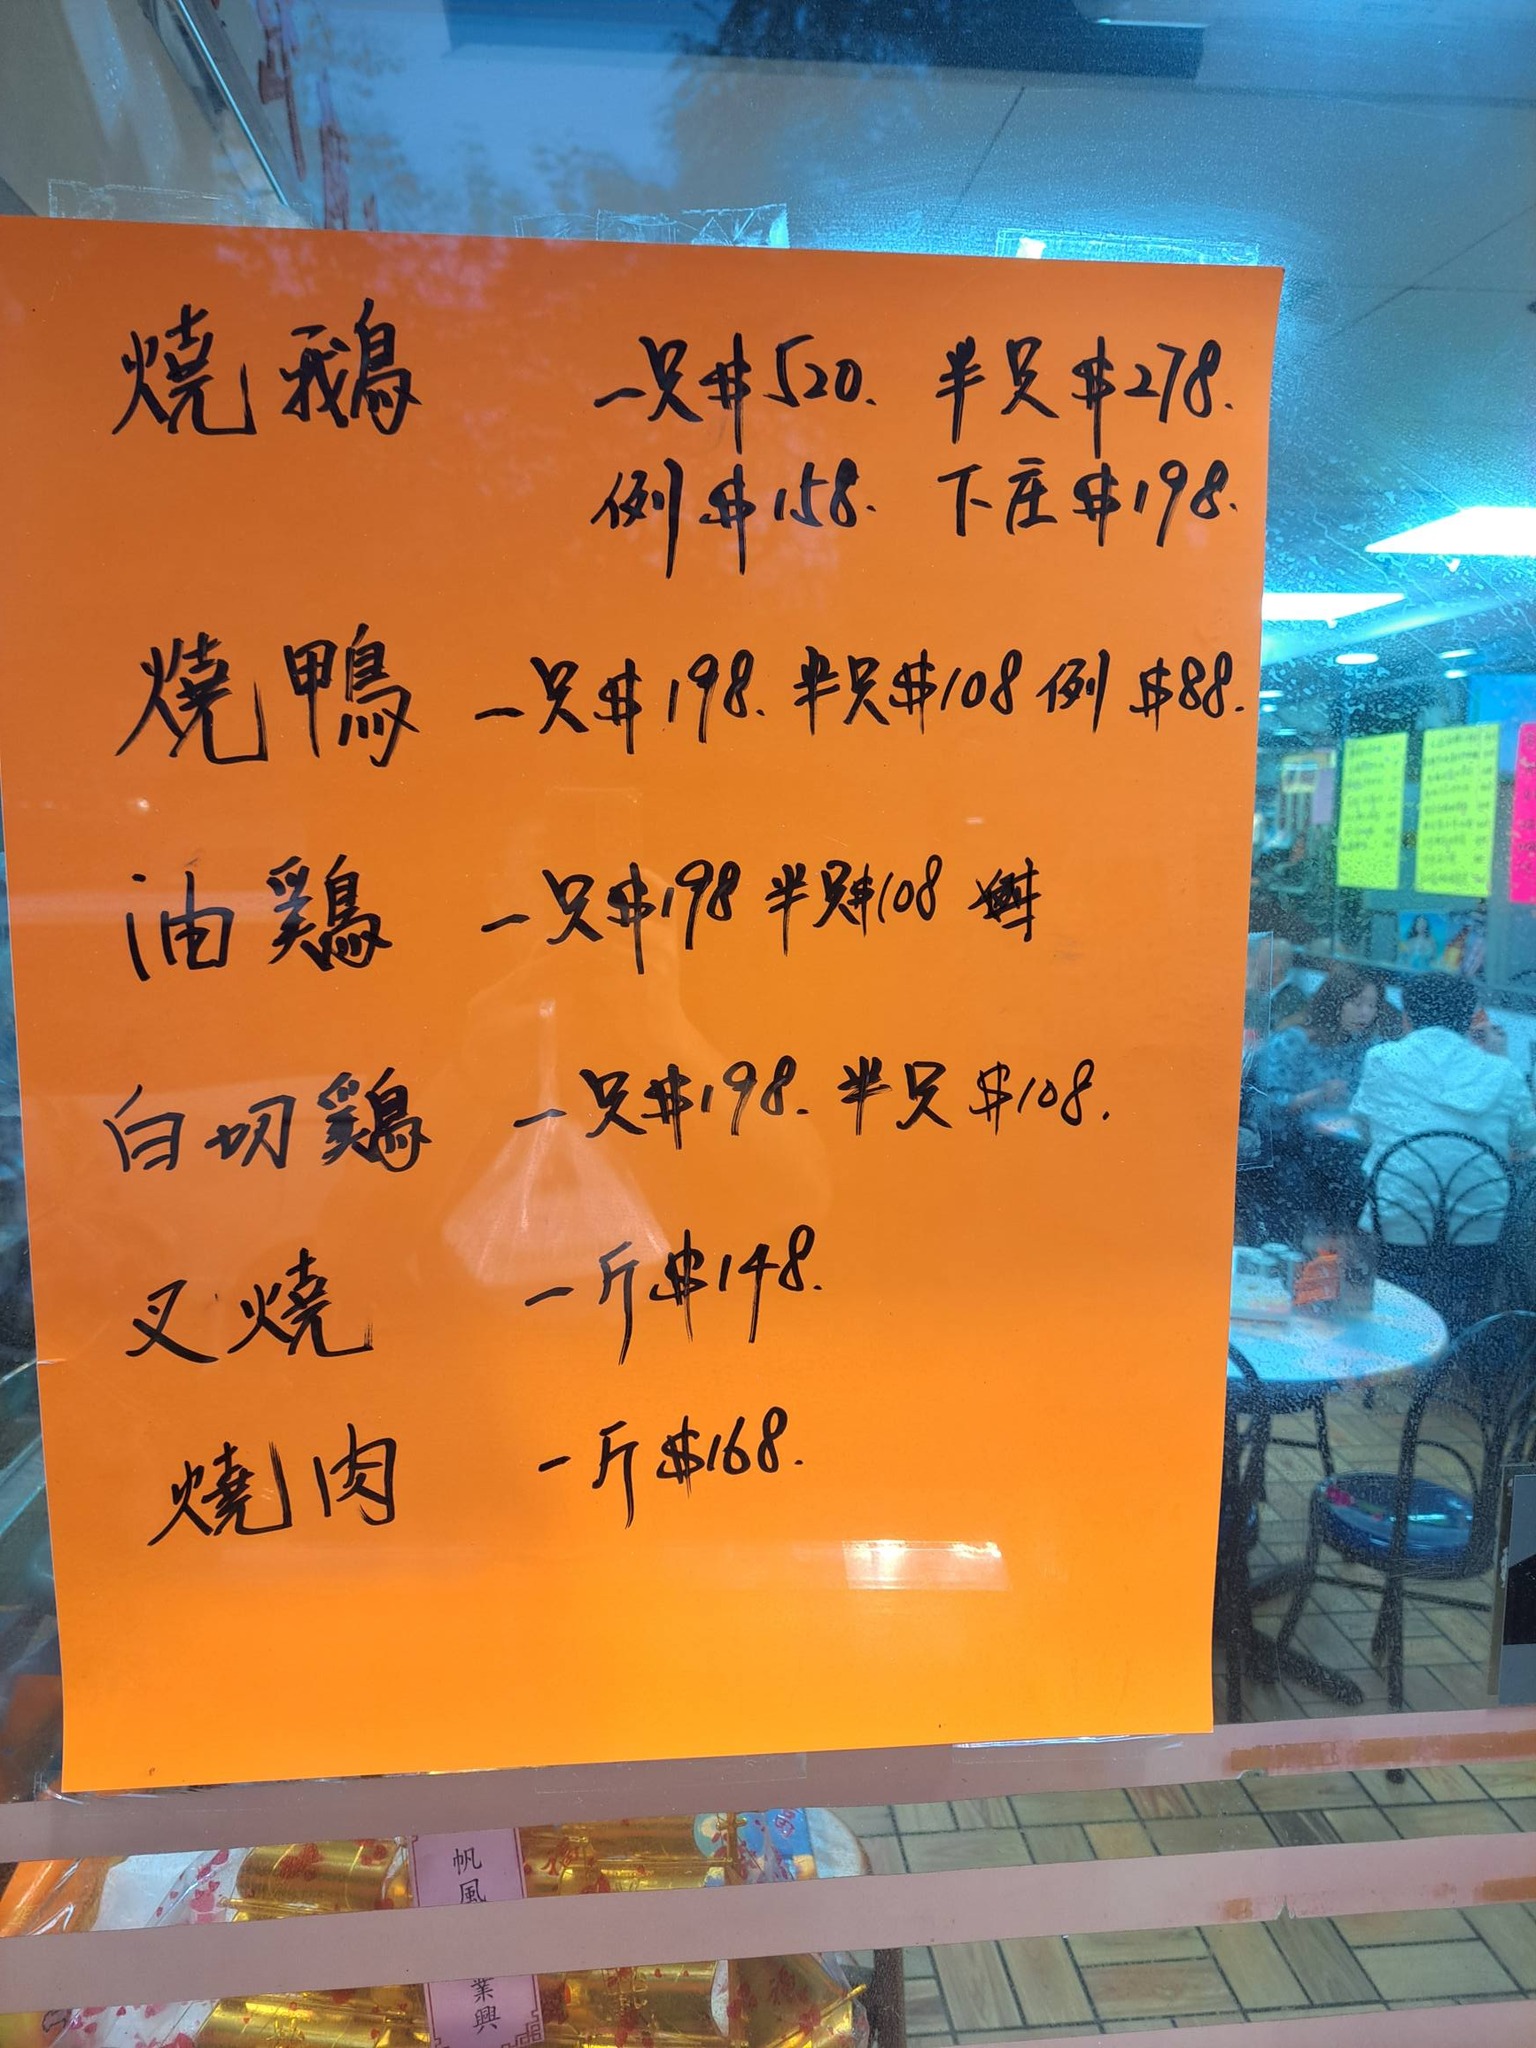 燒鵝 一只$520. 半只$278.
例$158. 下庄$198.
燒鴨 一只$198. 半只$108 例 $88.
油鷄 一只$198 半只$108
白切鷄 一只$198. 半只$108.
叉燒 一斤$148.
燒肉 一斤$168.
帆風
業興